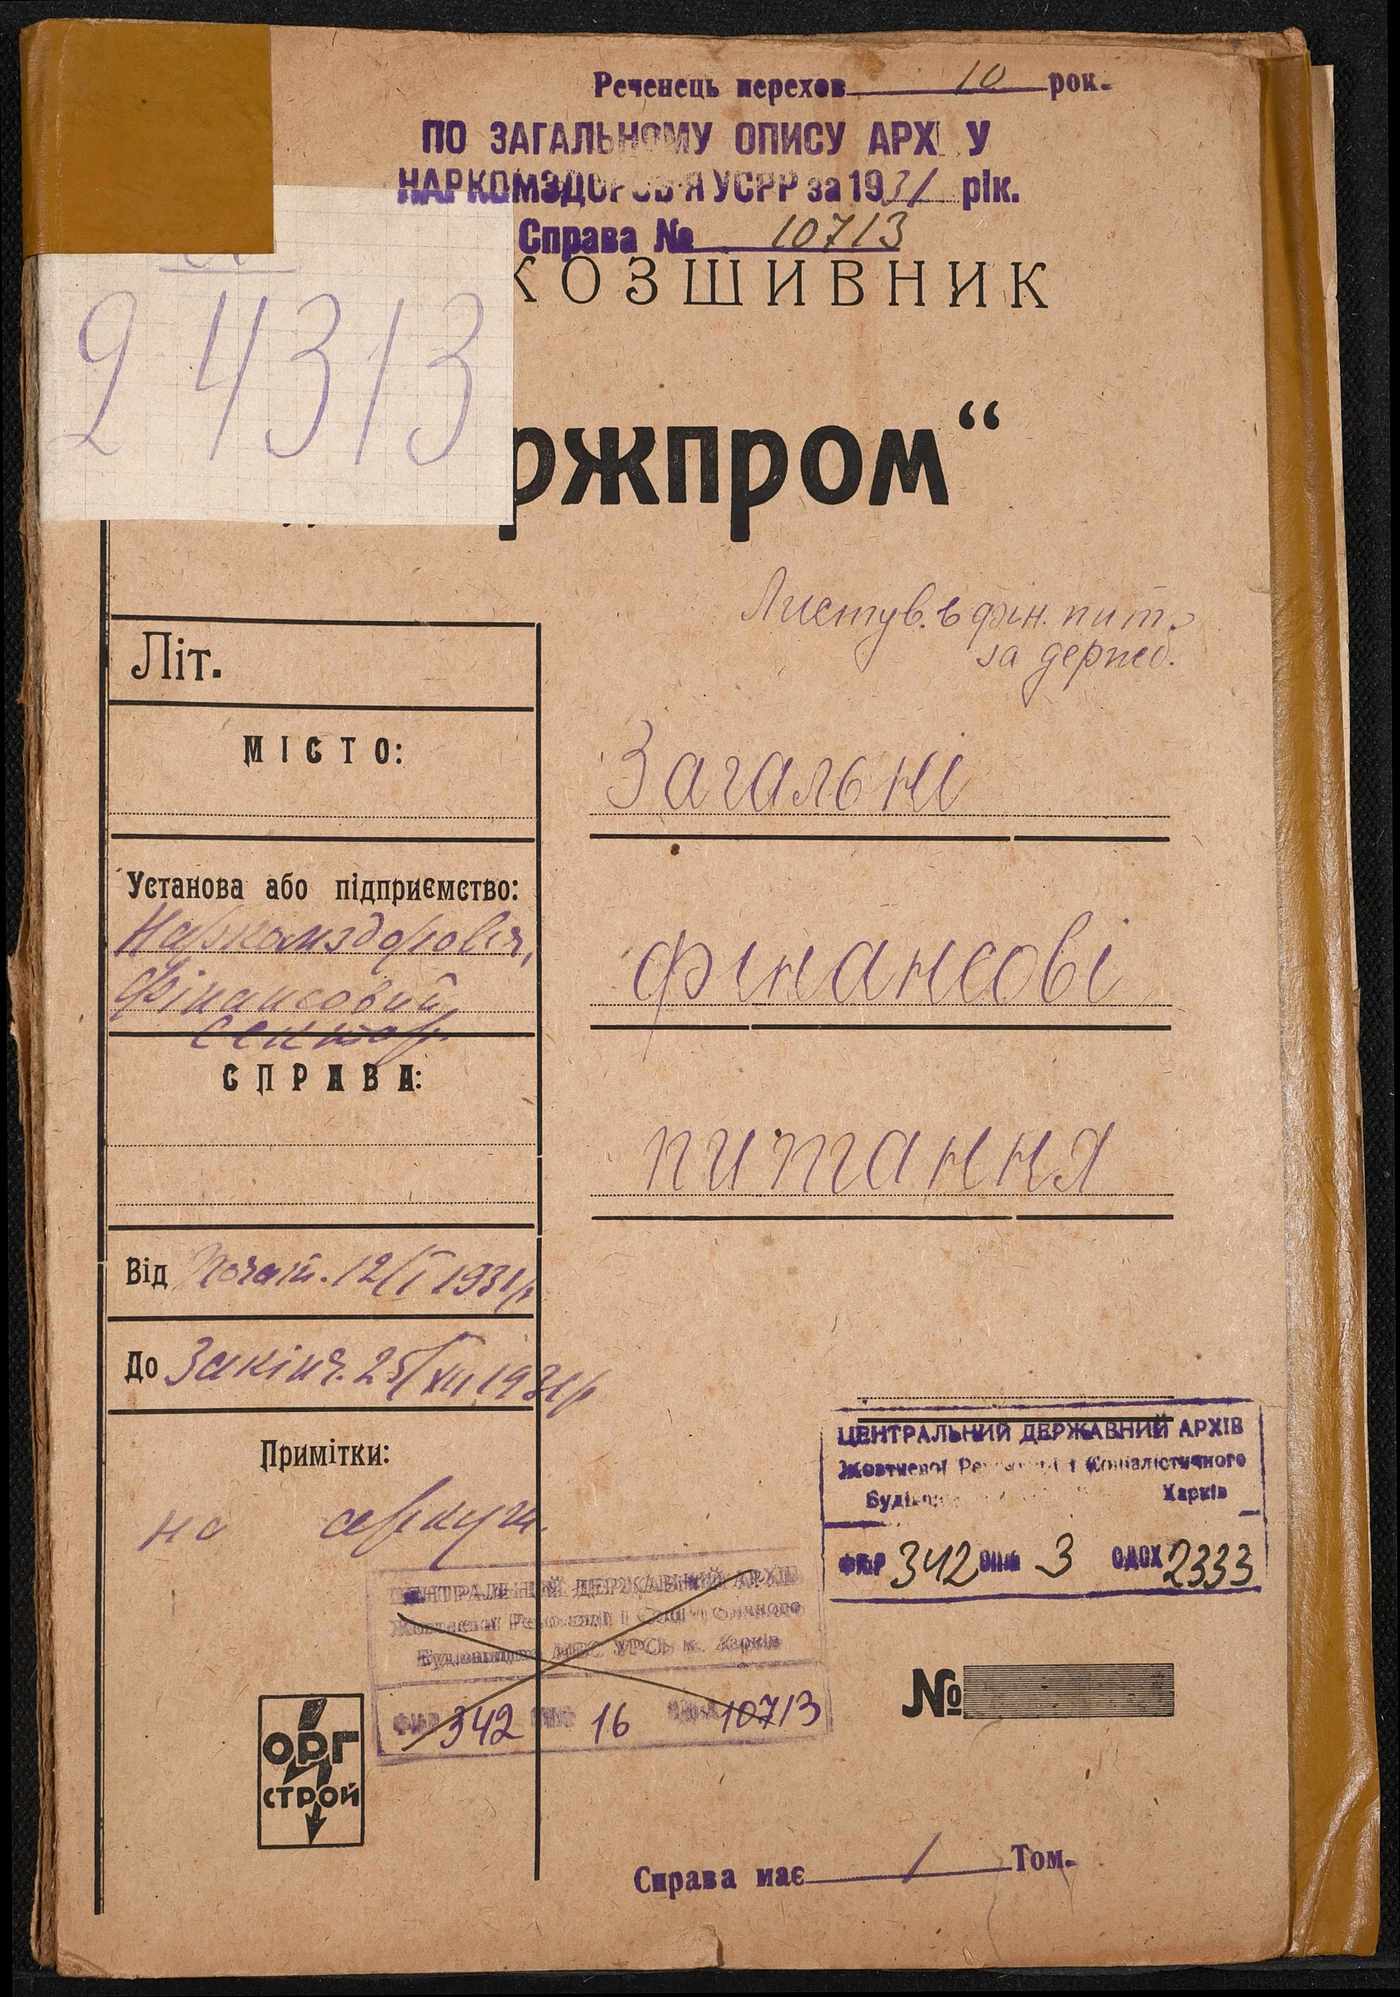 Реченець перехов 10 рок.
ПО ЗАГАЛЬНОМУ ОПИСУ АРХ У
НАРКОМЗДОРОВ'Я УСРР за 1931 рік.
Справа № 10713
КОЗШИВНИК
24313
ржпром“
Листув. в фін. пит.
за
Літ.
МІСТО:
Загальні
Установа або підприємство:
Наркомздоровя,
фінансовий
сектор
фінансові
СПРАВА:
питання
Від Почат. 12/I 1931р
До Закінч. 25/XII 1931р
Примітки:
на аркуш.
ЦЕНТРАЛЬНИЙ ДЕРЖАВНИЙ АРХІВ
Жовтневої і Соціалістичного
Харків
342 3 2333
ЦЕНТРАЛЬНИЙ ДЕРЖАВНИЙ АРХІВ
Жовтневої Революції і Соціалістичного
Будівництва УРСР м. Харків
342 16 10713
№
ОРГ
СТРОЙ
Справа має 1 Том.